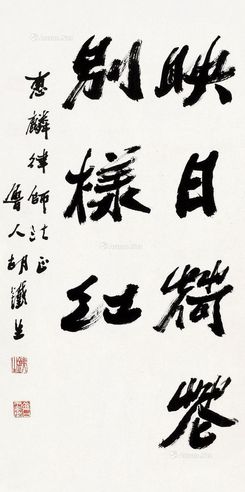 映日荷花
別樣紅
惠麟律師法正
魯人胡鐵生